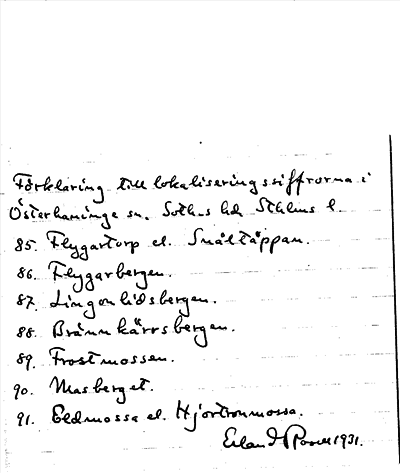 Förklaring till lokaliseringssiffrorna i
Österhaninge sn. Soth-s hd Sthlms l.
85. Flygartorp el. Smältäppan.
86. Flygarbergen.
87. Lingonlidsbergen.
88. Brännkärrsbergen.
89. Frostmossen.
90. Masberget.
91. Eldmossa el. Hjortronmossa.
Erland 1931.